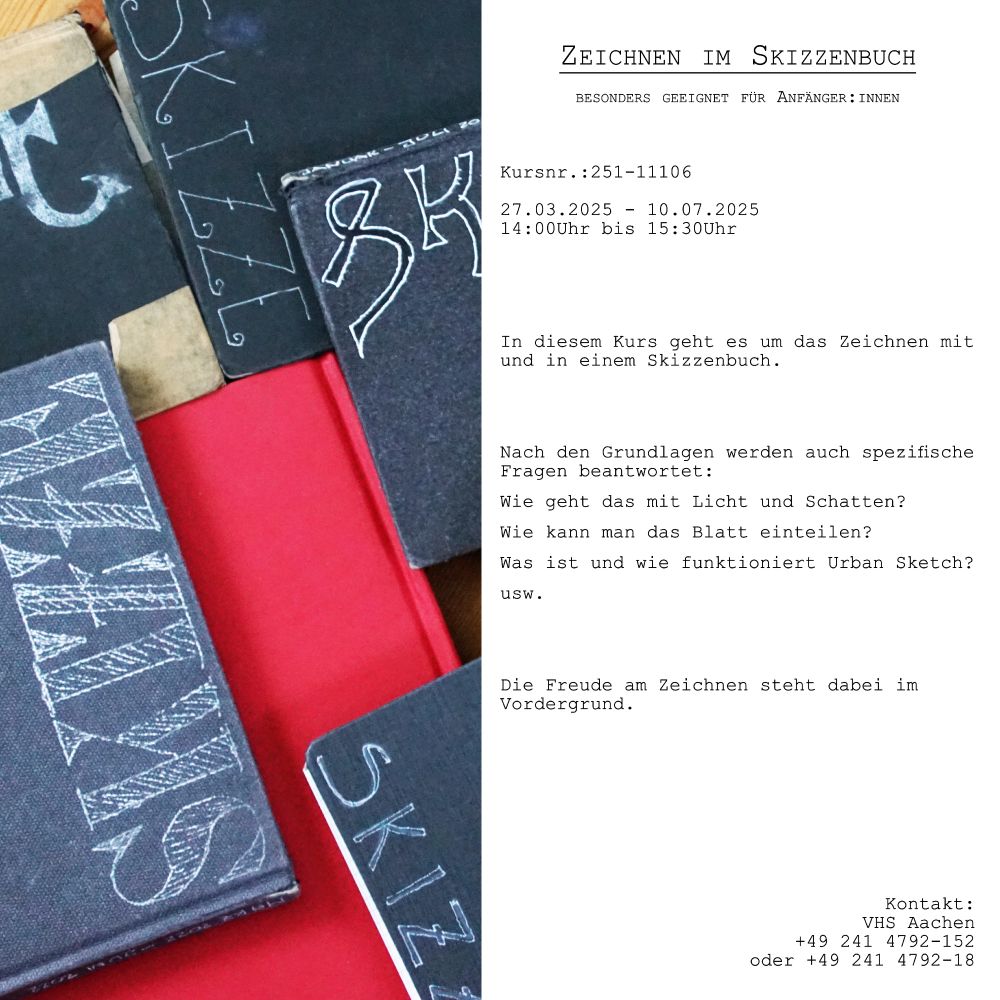 Zeichnen im Skizzenbuch
besonders geeignet für Anfänger:innen
Kursnr.:251-11106
27.03.2025 - 10.07.2025
14:00Uhr bis 15:30Uhr
In diesem Kurs geht es um das Zeichnen mit
und in einem Skizzenbuch.
Nach den Grundlagen werden auch spezifische
Fragen beantwortet:
Wie geht das mit Licht und Schatten?
Wie kann man das Blatt einteilen?
Was ist und wie funktioniert Urban Sketch?
usw.
Die Freude am Zeichnen steht dabei im
Vordergrund.
Kontakt:
VHS Aachen
+49 241 4792-152
oder +49 241 4792-18
SKIZZE
SK
SKIZZE
SKIZZ